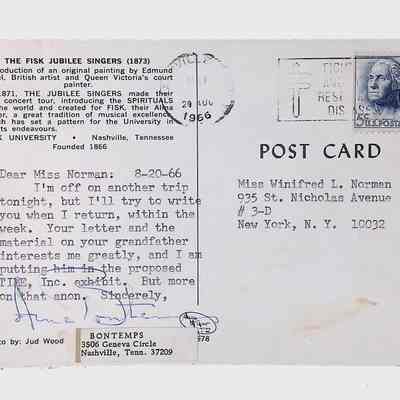 THE FISK JUBILEE SINGERS (1873)
oduction of an original painting by Edmund
el, British artist and Queen Victoria's court
painter.
871, THE JUBILEE SINGERS made their
concert tour, introducing the SPIRITUALS
he world and created for FISK, their Alma
er, a great tradition of musical excellence
ch has set a pattern for the University in
ts endeavours.
K UNIVERSITY • Nashville, Tennessee
Founded 1866
VILLE
AUG
1966
FIGH
RES
DIS
5¢ U.S. POSTAGE
POST CARD
Dear Miss Norman: 8-20-66
I'm off on another trip
tonight, but I'll try to write
you when I return, within the
week. Your letter and the
material on your grandfather
interests me greatly, and I am
putting him in the proposed
TIME, Inc. exhibit. But more
on that anon. Sincerely,
Arna Bontemps
Miss Winifred L. Norman
935 St. Nicholas Avenue
# 3-D
New York, N. Y. 10032
to by: Jud Wood
BONTEMPS
3506 Geneva Circle
Nashville, Tenn. 37209
578